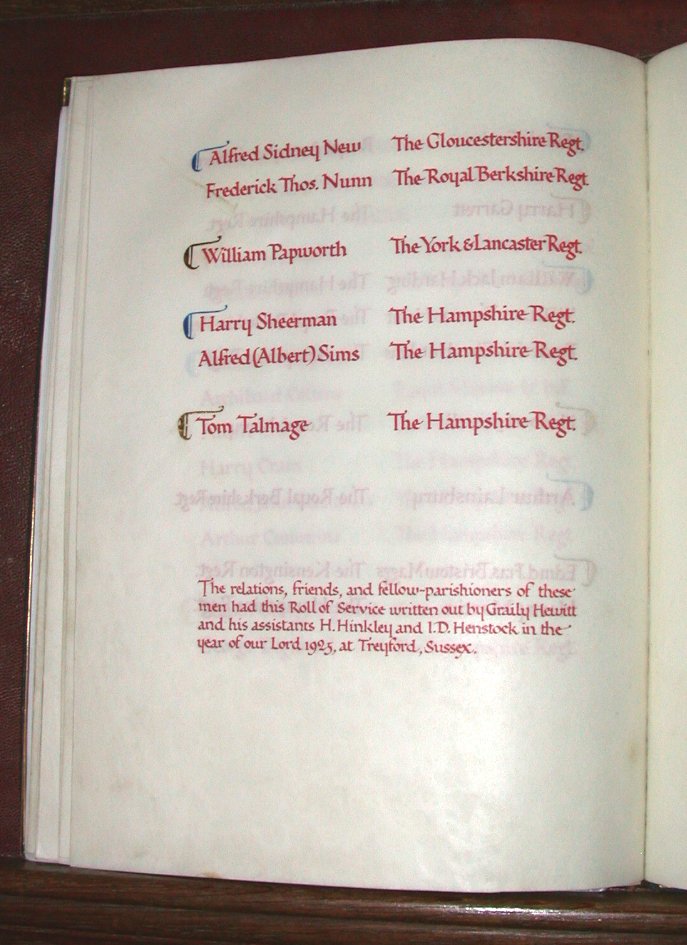 Alfred Sidney New The Gloucestershire Regt.
Frederick Thos. Nunn The Royal Berkshire Regt
William Papworth The York & Lancaster Regt.
Harry Sheerman The Hampshire Regt.
Alfred (Albert) Sims The Hampshire Regt.
Tom Talmage The Hampshire Regt.
The relations, friends, and fellow-parishioners of these
men had this Roll of Service written out by Graily Hewitt
and his assistants H. Hinkley and I.D. Henstock in the
year of our Lord 1925, at Treyford, Sussex.